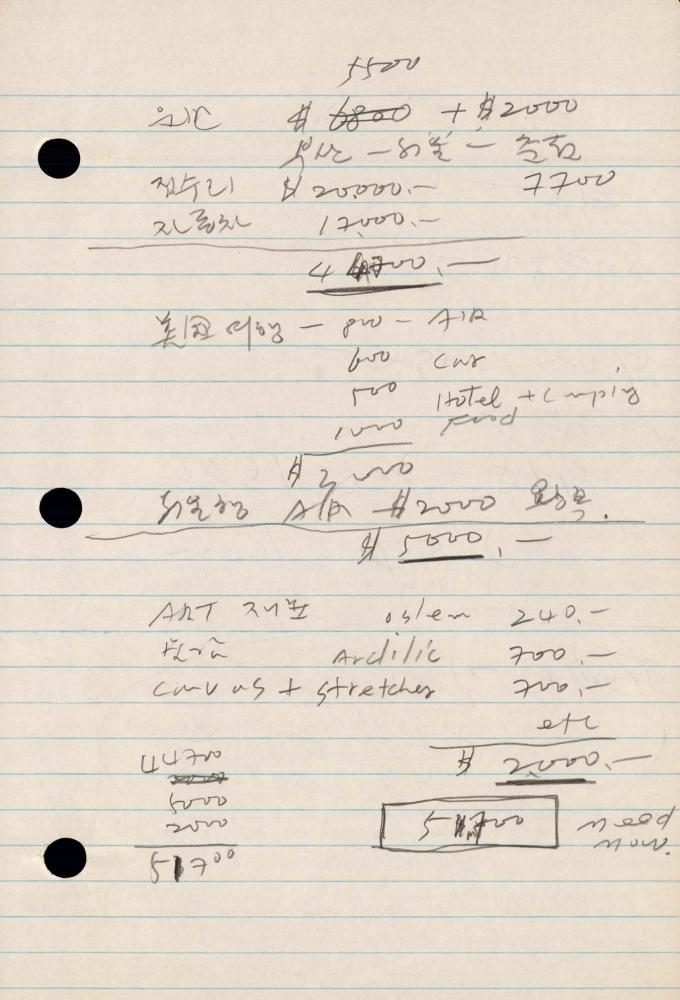 5500
$ 6800 + $2000
부산 - 서울 -
집수리 $ 20,000.- 7700
자동차 17,000.-
44700.-
美国 여행 - 800 - AIR
600 Car
500 Hotel + Camping
1000 Food
$
서울행 AIR $2000 왕복.
$ 5000.-
ART 재료 240.-
물감 700.-
canvas + stretcher 700.-
etc
$ 2000.-
44700
5000
2000
51700
51700 need
now.